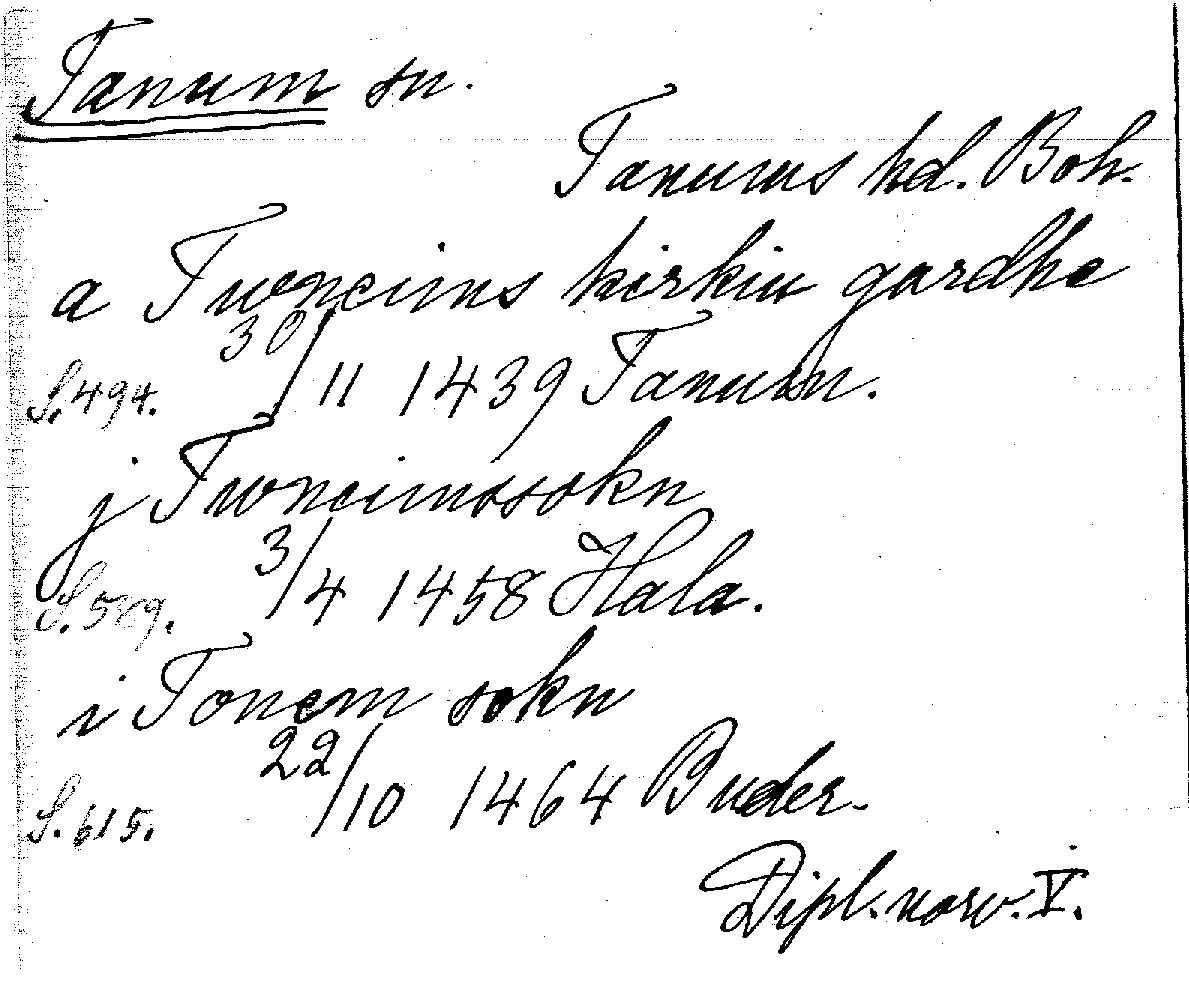 Tanum sn.
Tanums hd. Boh.
a Twneims kirkiu gardhe
S. 494. 30/11 1439 Tanum.
j Twneimssokn
S. 589. 3/4 1458 Hala.
i Tonem sokn
S. 615. 22/10 1464 Buder.
Dipl. norv. V.